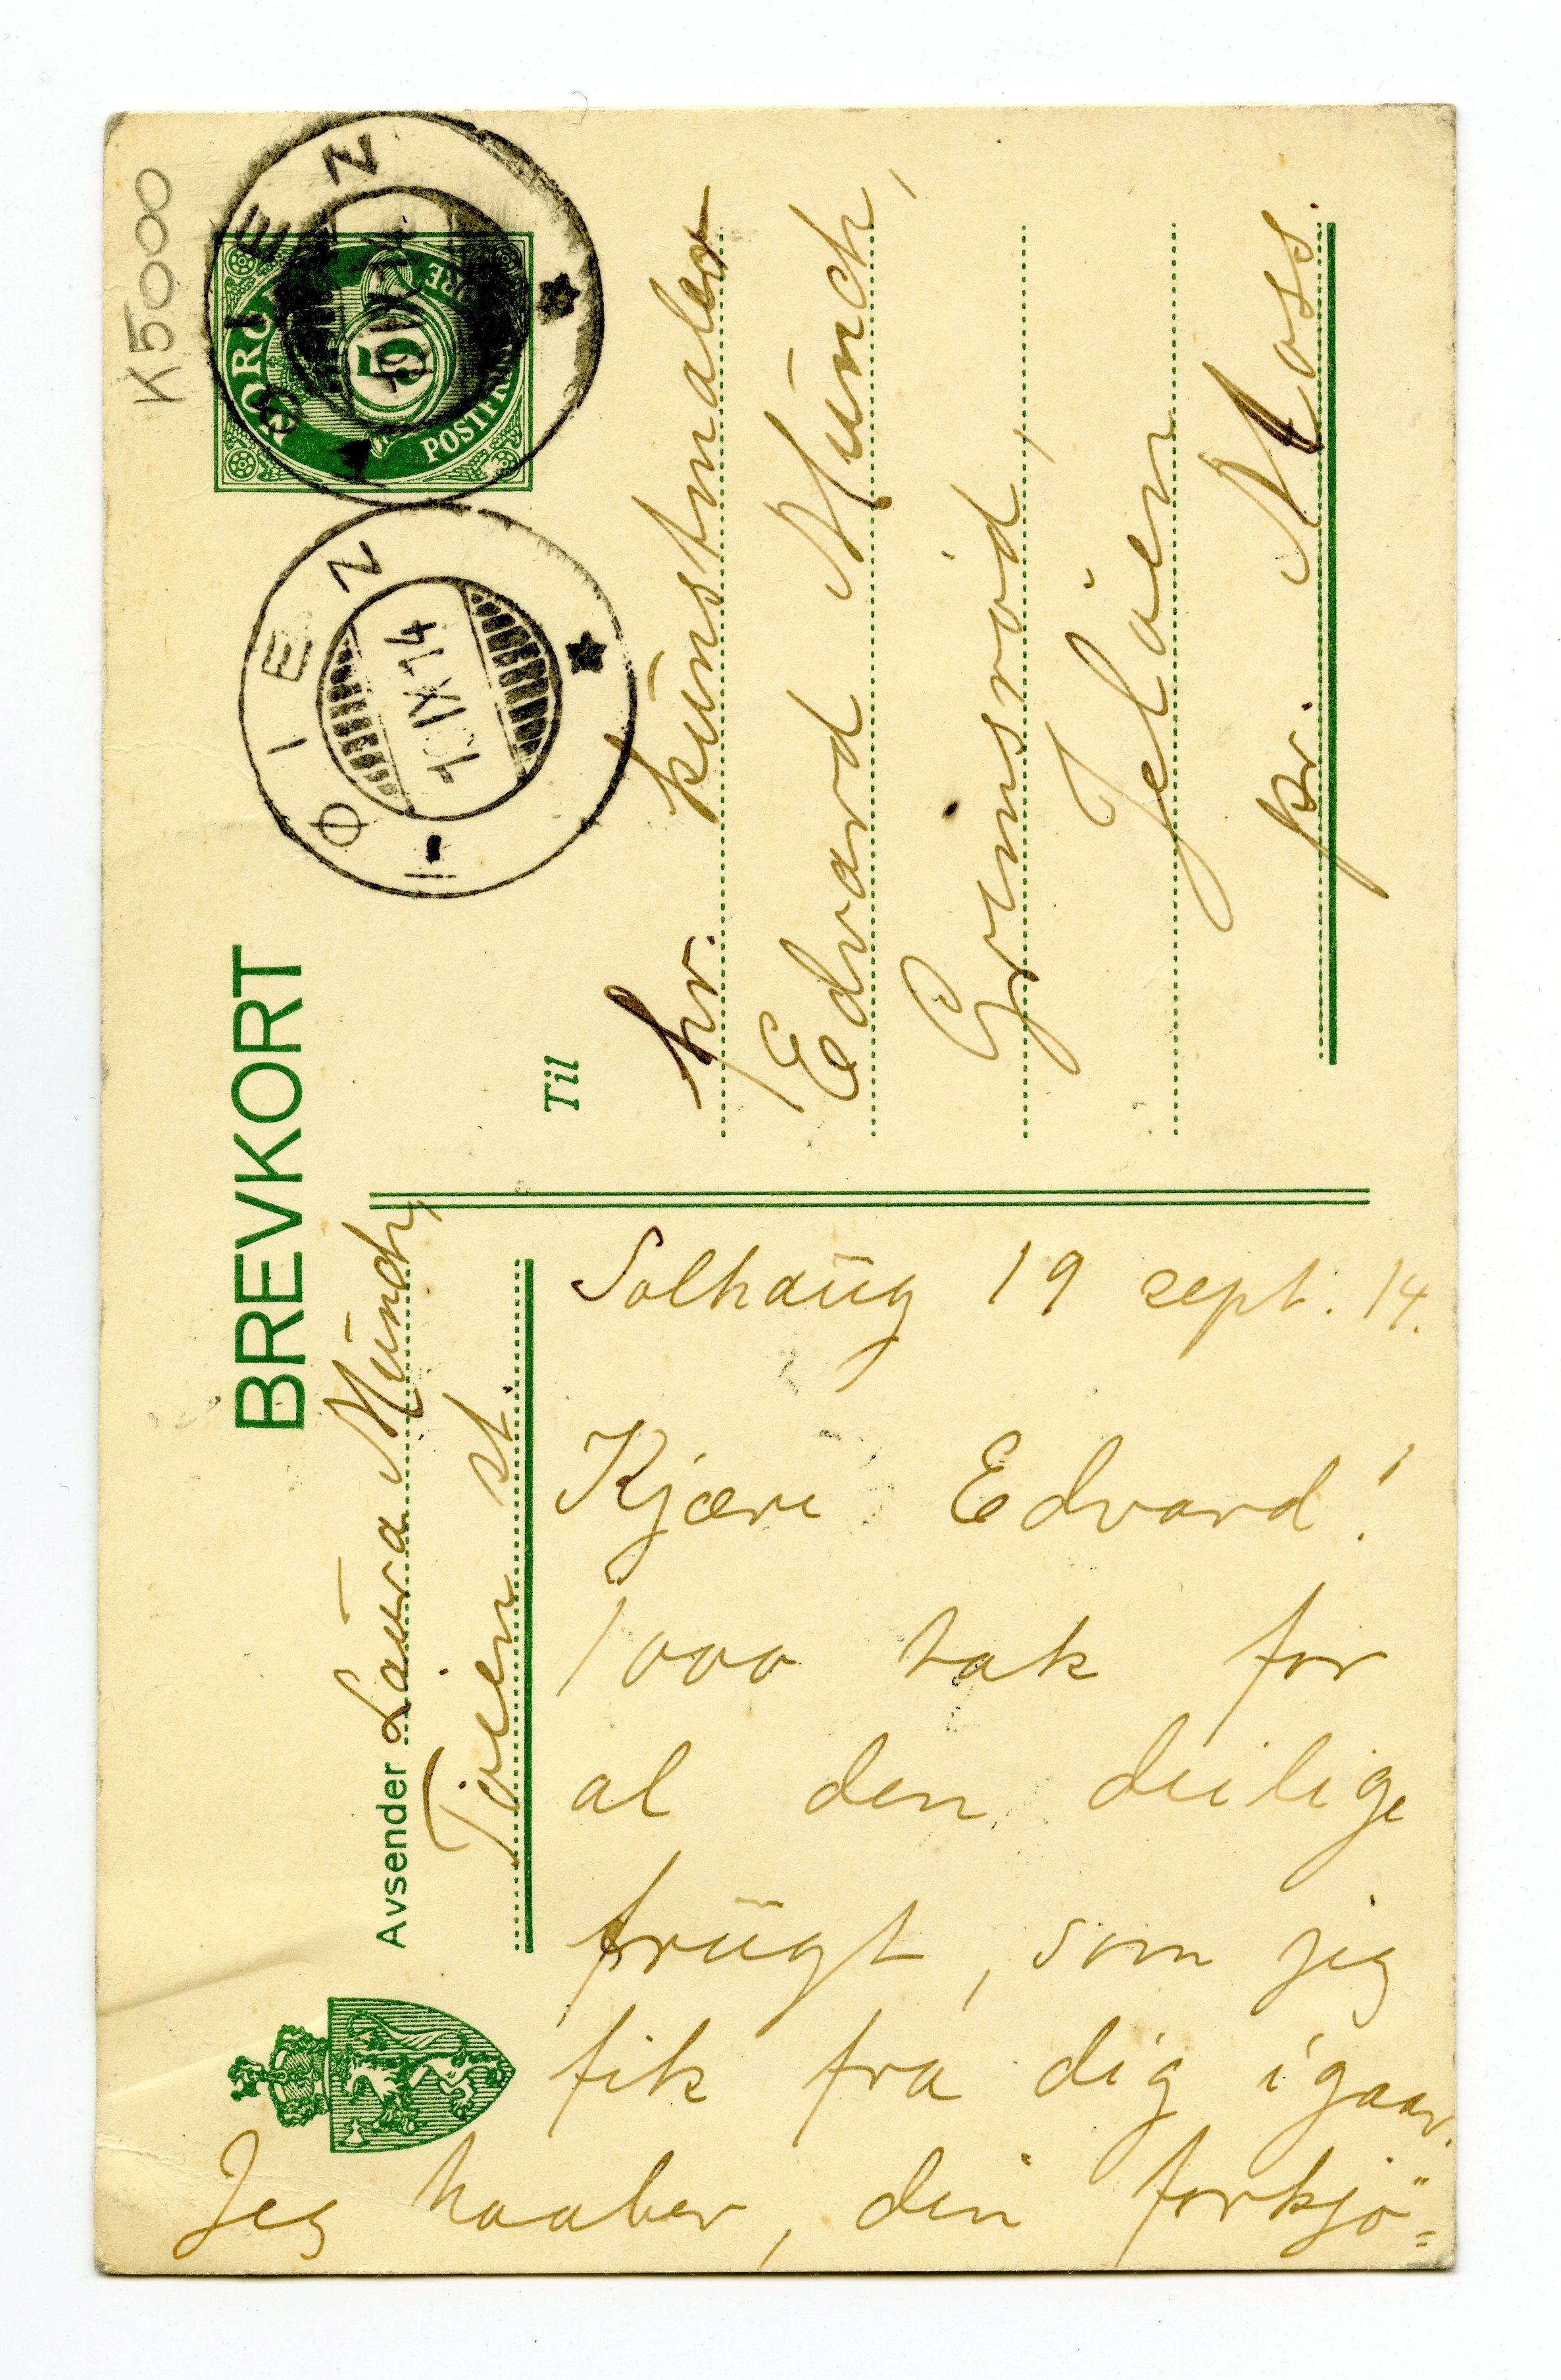 K5000
BREVKORT
NORGE
5
POSTFRIM
ØRE
TØIEN
TØIEN
19 IX 14
Avsender Laura Munch,
Töien st.
Til
hr. kunstmaler
Edvard Munch,
Grimsröd,
Jelöien
pr. Moss.
Solhaug 19 sept. 14.
Kjære Edvard!
1000 tak for
al den deilige
frugt, som jeg
fik fra dig igaar.
Jeg haaber, din forkjö-